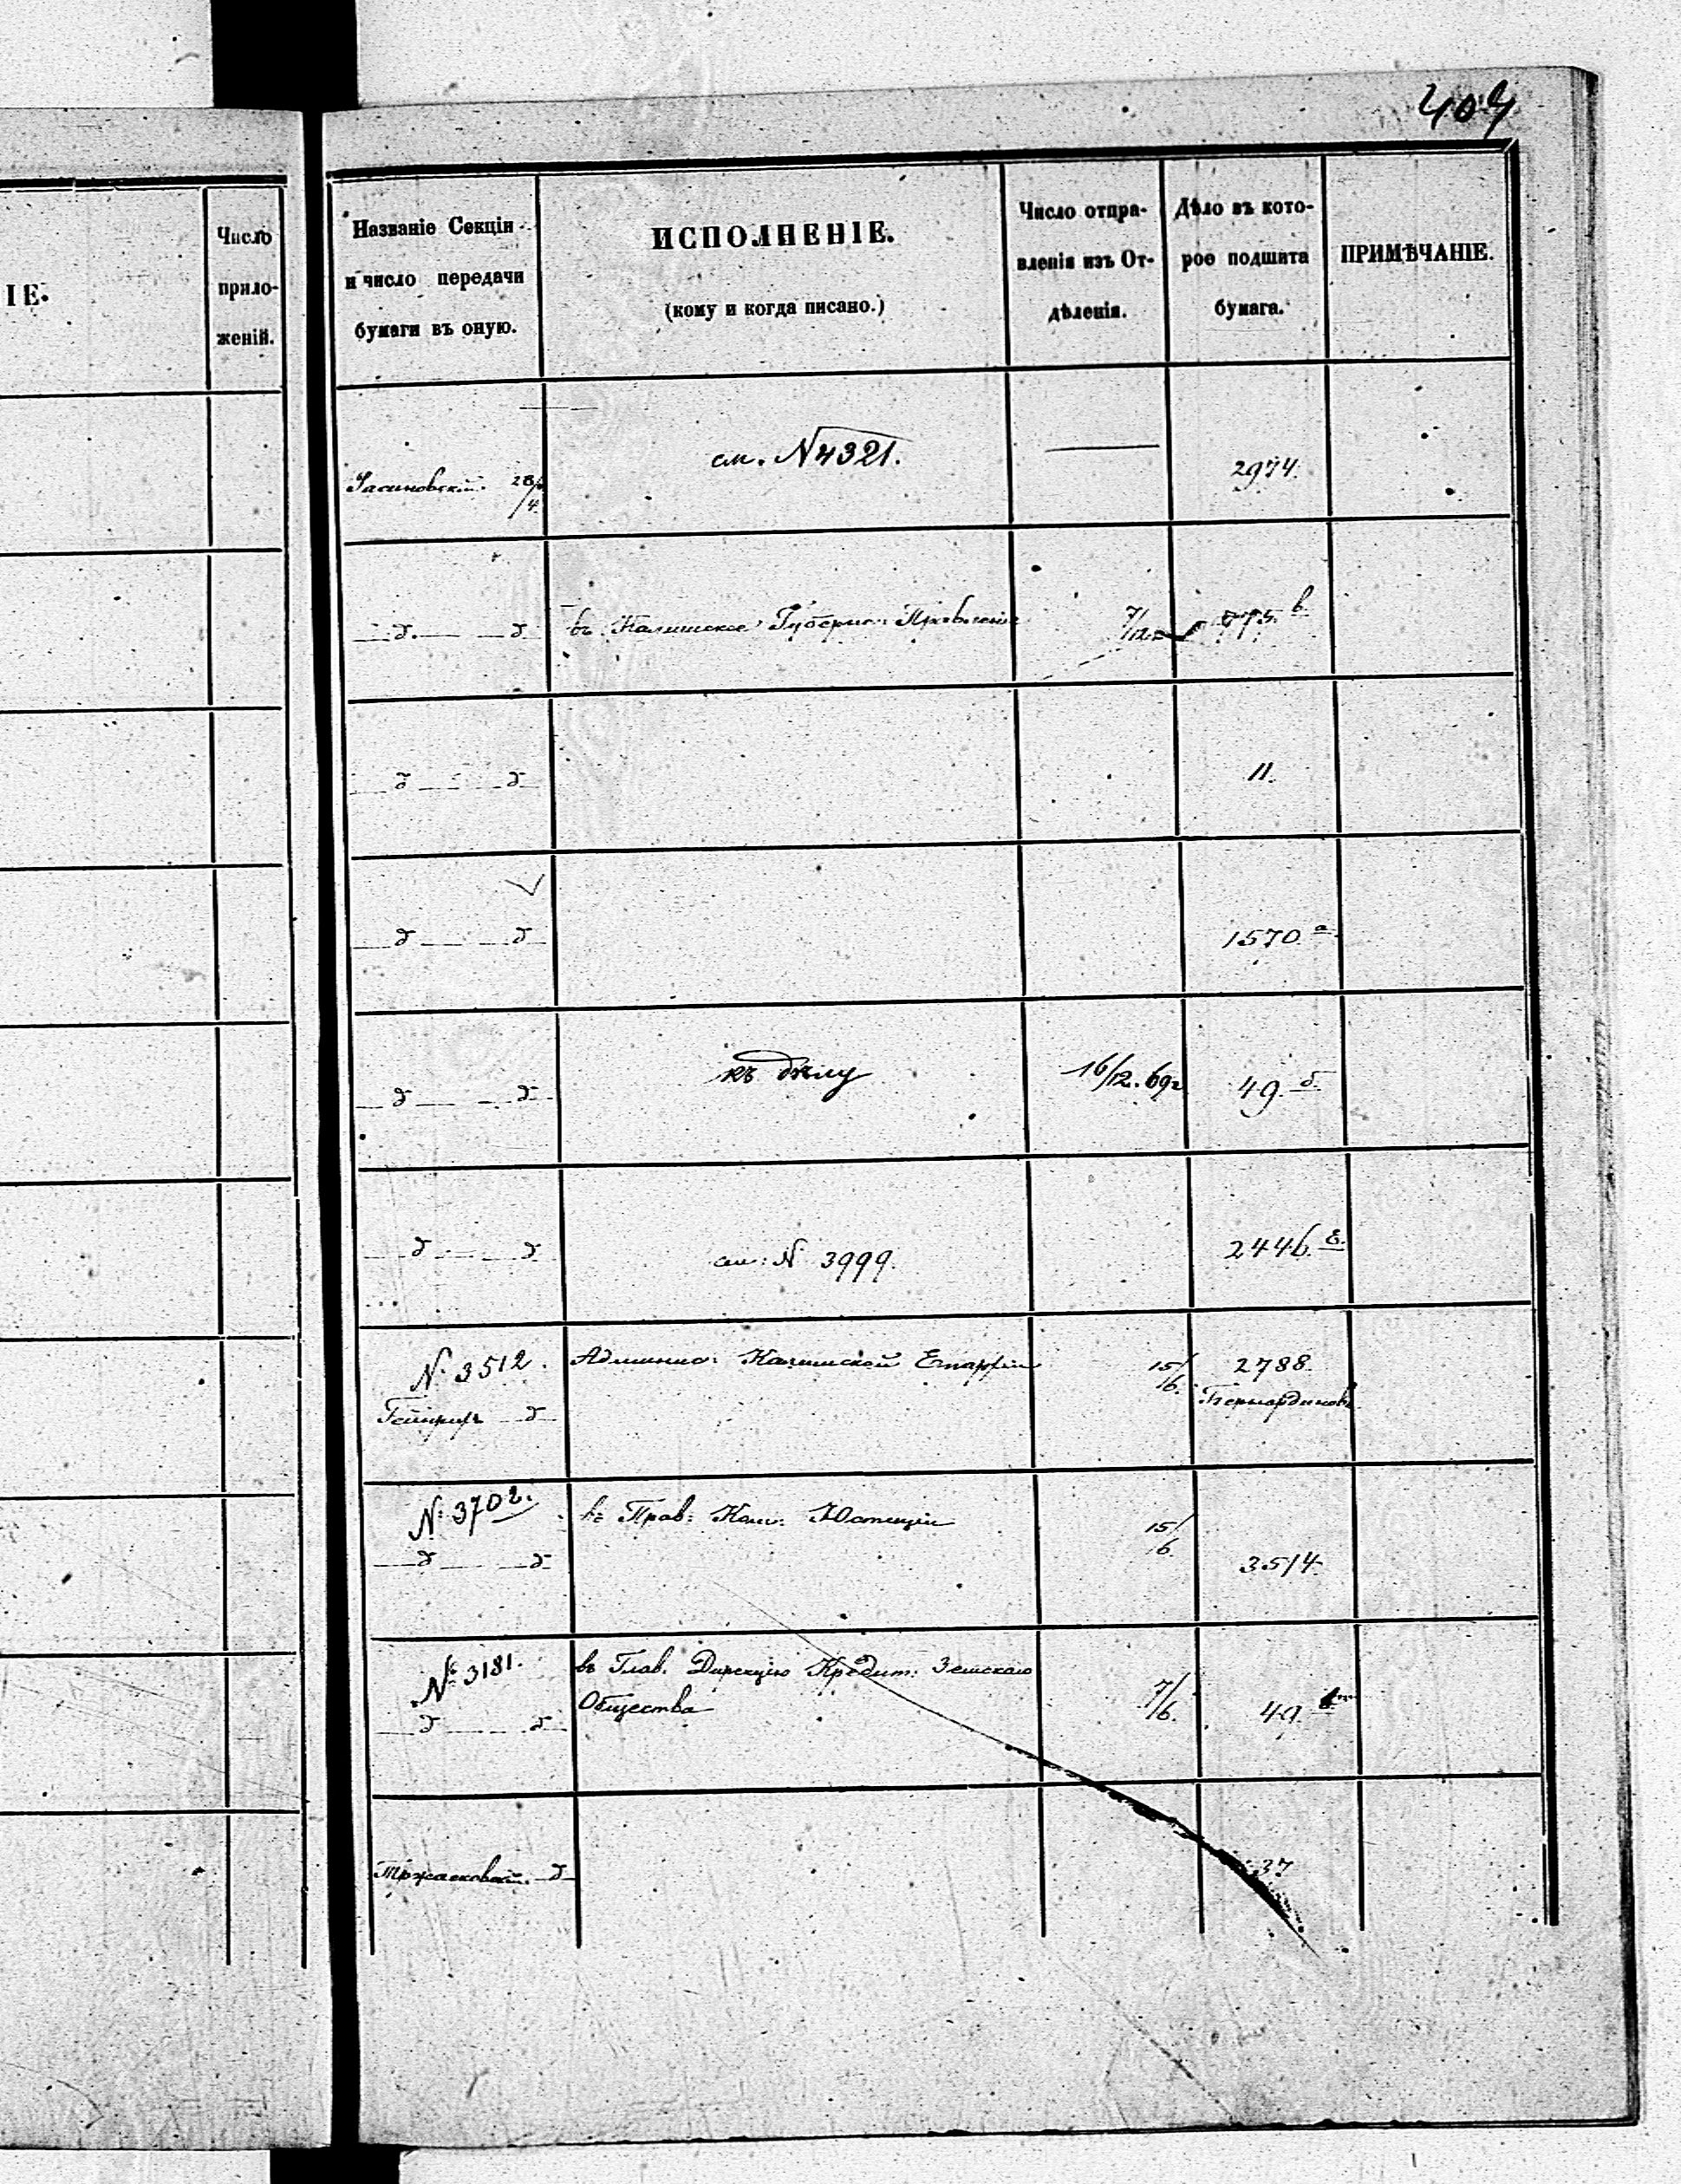 404
ІЕ.
Число
прило-
женій.
Названіе Секціи
и число передачи
бумаги въ оную.
ИСПОЛНЕНІЕ.
(кому и когда писано.)
Число отпра-
вленія изъ От-
дѣленія.
Дѣло въ кото-
рое подшита
бумага.
ПРИМѢЧАНІЕ.
28/4
см. N 4321.
2974.
д д
въ Калишское Губерн: Правленіе
775 в
д д
11.
д д
1570 а
д д
къ дѣлу
16/12. 69г
49. б
д д
см: N 3999.
2446.
N. 3512.
д
Админис: Калишской Епархіи
15/6.
2788.
Бернардиновъ
N: 3702.
д д
въ Прав: Ком: Юстиціи
15/6.
3514
№ 3181.
д д
въ Глав. Дирекцію Кредит: Земскаго
Общества
7/6.
49.
д
37